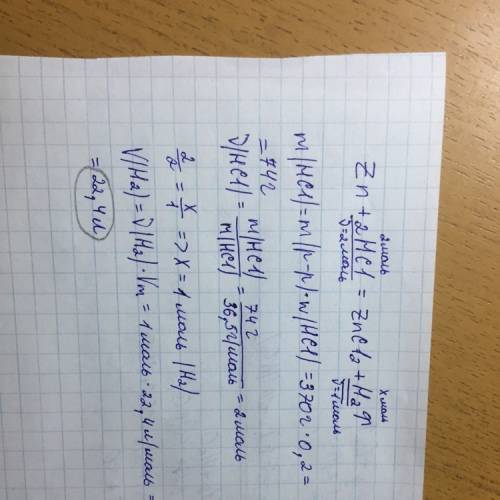 2моль x моль
Zn + 2HCl = ZnCl₂ + H₂↑
ν=2моль ν=1моль
m(HCl) = m(р-р)·w(HCl) = 370г·0,2 =
= 74г
ν(HCl) = m(HCl)/M(HCl) = 74г/36,5г/моль = 2моль
2/2 = x/1 => x = 1 моль (H₂)
V(H₂) = ν(H₂)·Vm = 1моль·22,4л/моль =
= 22,4л